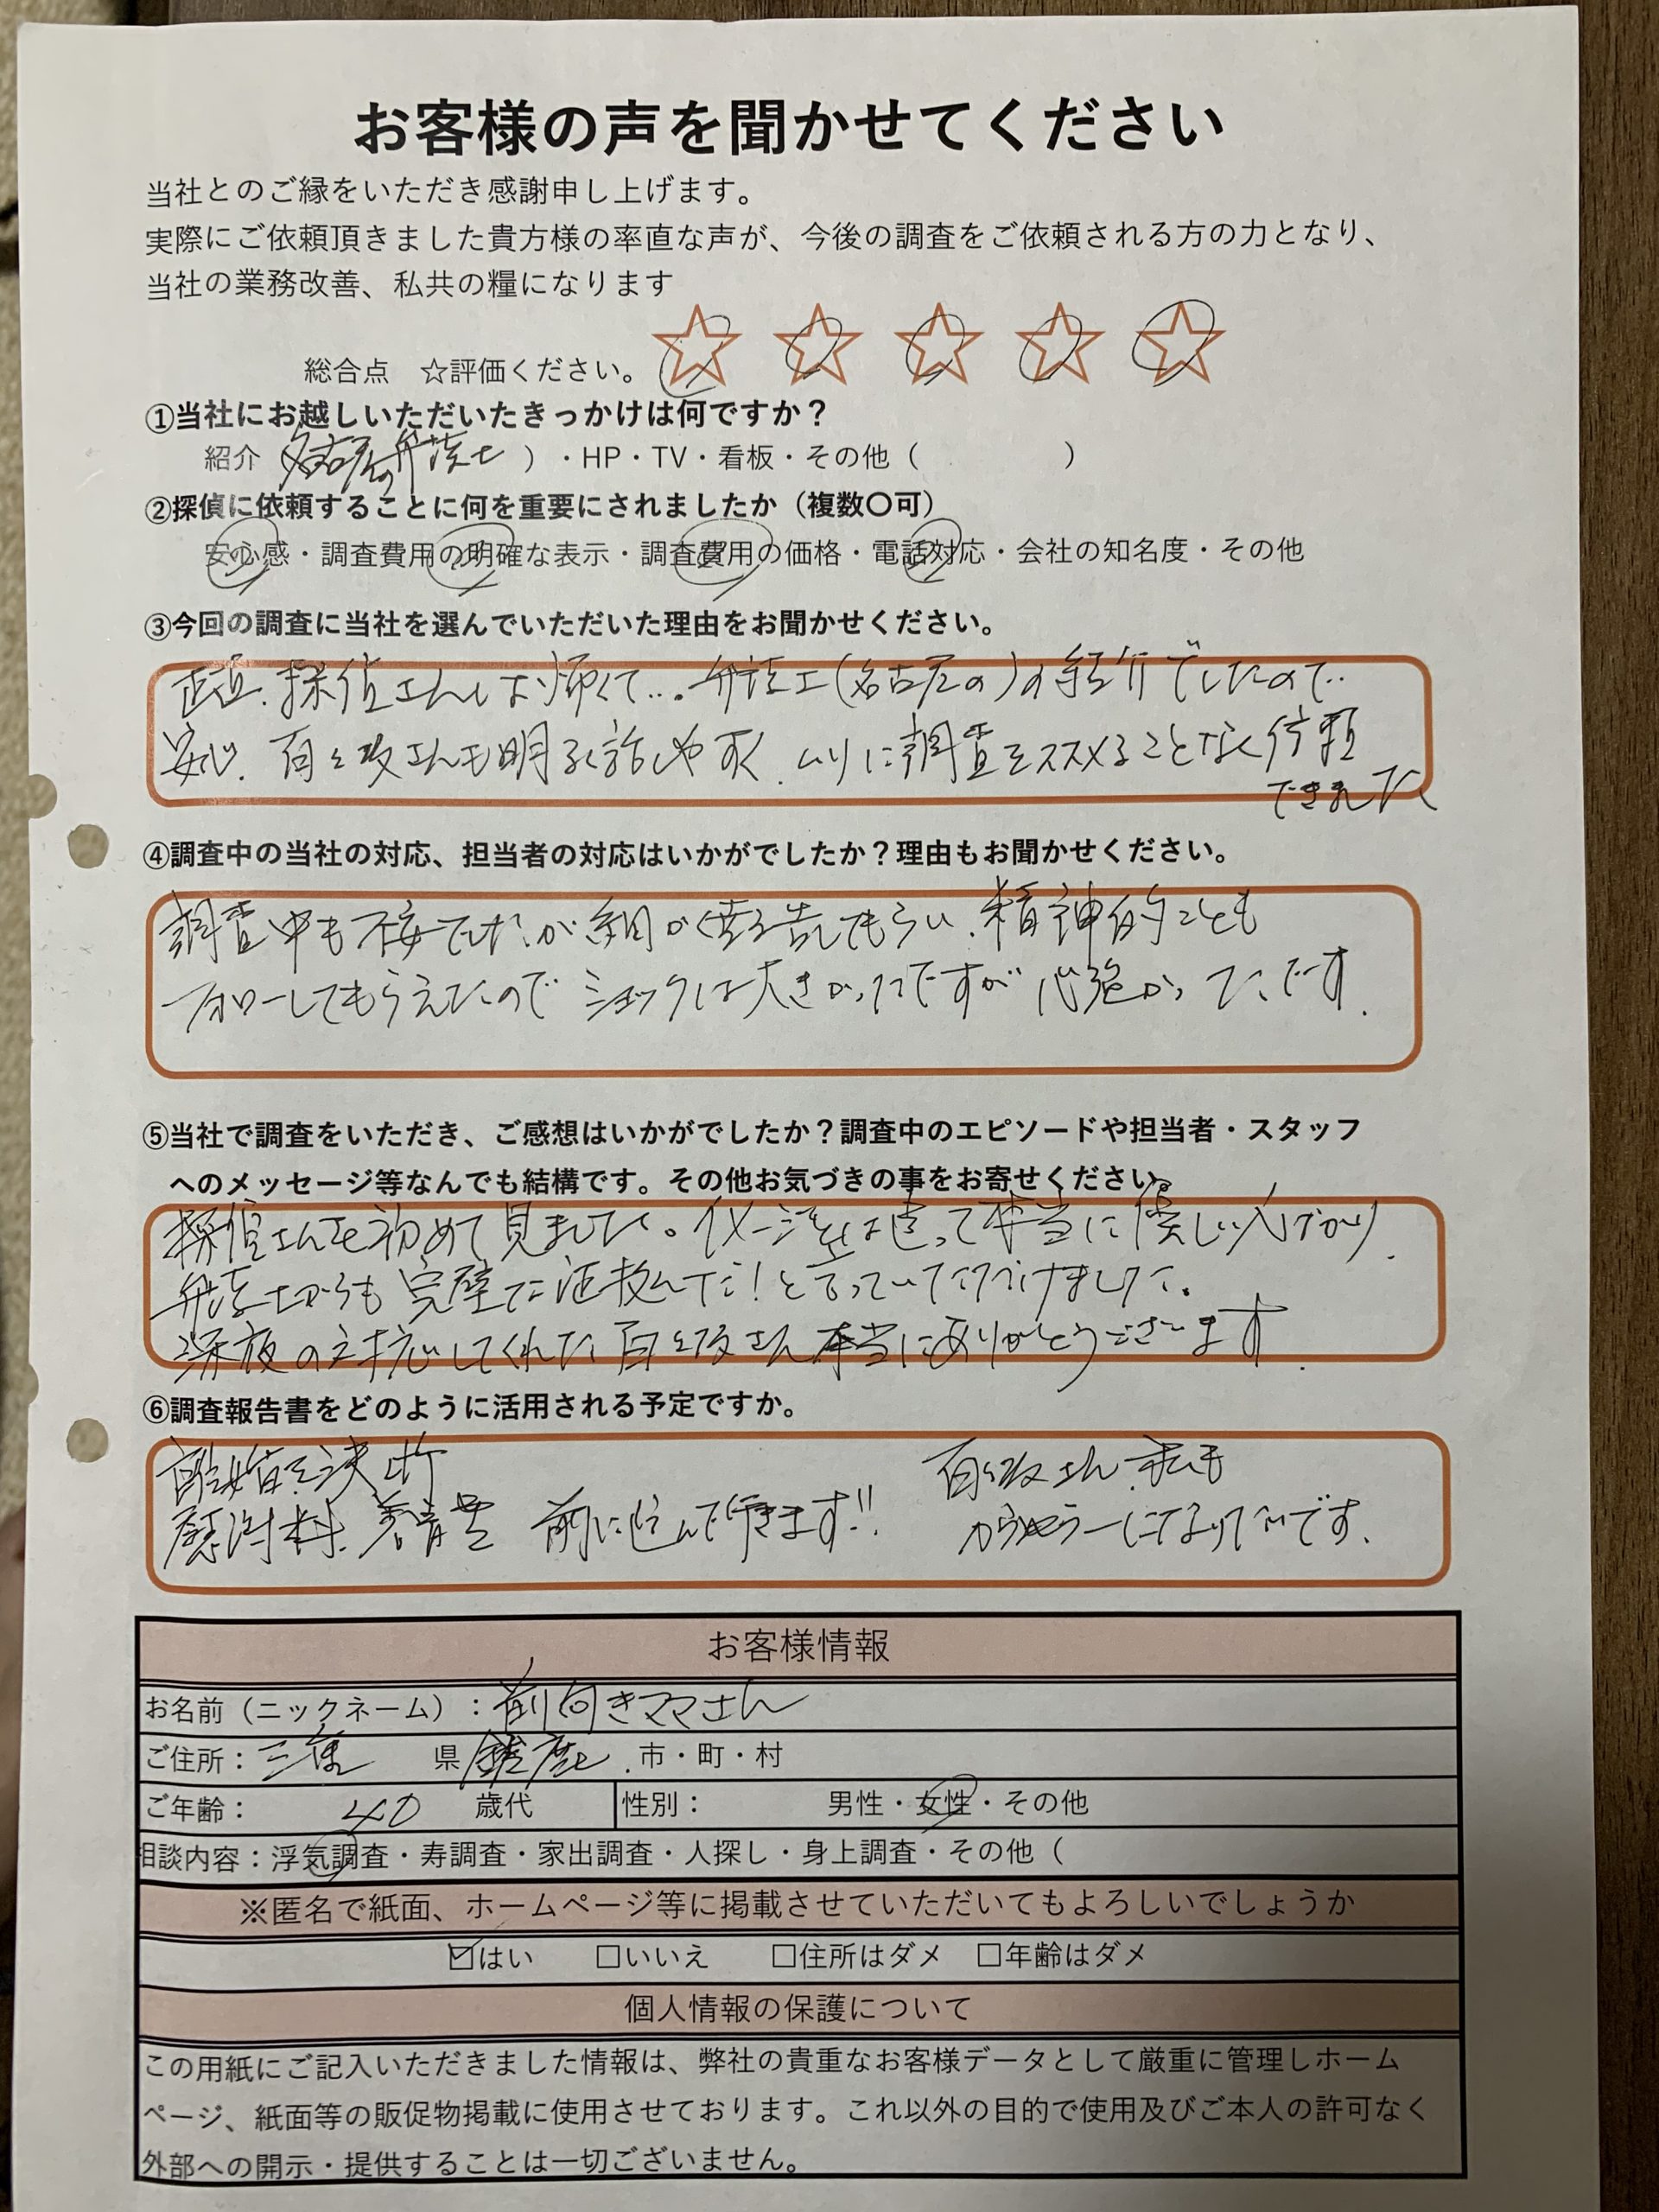 お客様の声を聞かせてください
当社とのご縁をいただき感謝申し上げます。
実際にご依頼頂きました貴方様の率直な声が、今後の調査をご依頼される方の力となり、
当社の業務改善、私共の糧になります
総合点 ☆評価ください。☆☆☆☆☆
①当社にお越しいただいたきっかけは何ですか？
紹介（名古屋の弁護士）・HP・TV・看板・その他（ ）
②探偵に依頼することに何を重要にされましたか（複数〇可）
安心感・調査費用の明確な表示・調査費用の価格・電話対応・会社の知名度・その他
③今回の調査に当社を選んでいただいた理由をお聞かせください。
正直、探偵さんは怖くて… 弁護士(名古屋の)の紹介でしたので‥
安心、百々政さんも明るく話しやすく、ムリに調査をススメることなく信頼
できました
④調査中の当社の対応、担当者の対応はいかがでしたか？理由もお聞かせください。
調査中も不安でしたが細かく報告してもらい、精神的ことも
フォローしてもらえたので ショックは大きかったですが 心強かったです.
⑤当社で調査をいただき、ご感想はいかがでしたか？調査中のエピソードや担当者・スタッフ
へのメッセージ等なんでも結構です。その他お気づきの事をお寄せください。
探偵さんを初めて見ました。イメージとは違って本当に優しい人ばかり.
弁護士からも 完璧な証拠んだ!と言っていただけました.
深夜の対応してくれた 百々政さん 本当にありがとうございます.
⑥調査報告書をどのように活用される予定ですか。
離婚を決断 百々政さん 私も
慰謝料、養育費 前に進んで行きます!! です.
お客様情報
お名前（ニックネーム）：前向きママさん
ご住所：三重 県 鈴鹿 市・町・村
ご年齢： 40 歳代 性別： 男性・女性・その他
相談内容：浮気調査・寿調査・家出調査・人探し・身上調査・その他（
※匿名で紙面、ホームページ等に掲載させていただいてもよろしいでしょうか
☑はい □いいえ □住所はダメ □年齢はダメ
個人情報の保護について
この用紙にご記入いただきました情報は、弊社の貴重なお客様データとして厳重に管理しホーム
ページ、紙面等の販促物掲載に使用させております。これ以外の目的で使用及びご本人の許可なく
外部への開示・提供することは一切ございません。